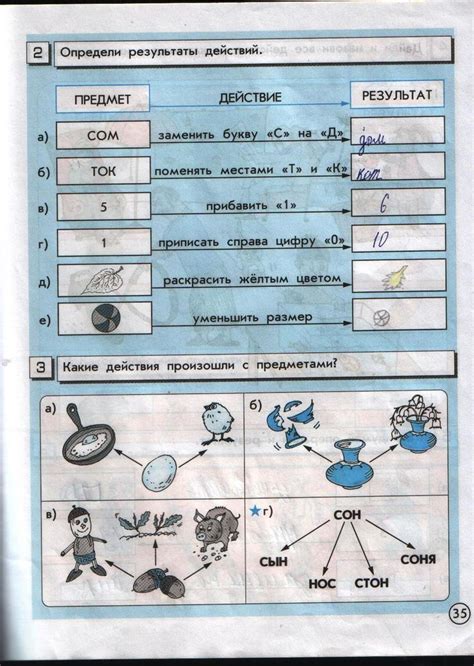 2 Определи результаты действий.
ПРЕДМЕТ ДЕЙСТВИЕ РЕЗУЛЬТАТ
а) СОМ заменить букву «С» на «Д» дом
б) ТОК поменять местами «Т» и «К» кот
в) 5 прибавить «1» 6
г) 1 приписать справа цифру «0» 10
д) раскрасить жёлтым цветом
е) уменьшить размер
3 Какие действия произошли с предметами?
а) б)
в) г) СОН
СЫН НОС СТОН СОНЯ
35